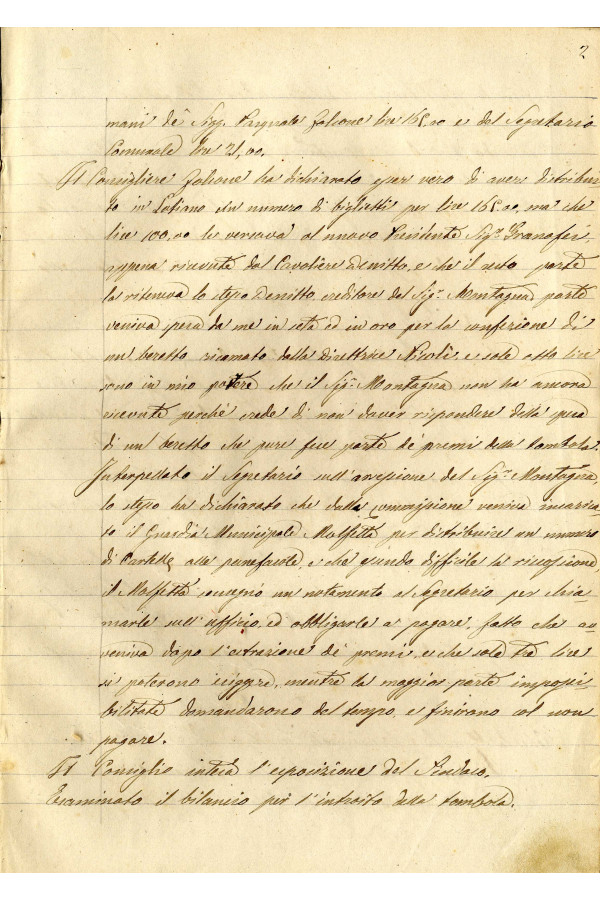 2
mani dè Sigg. Pasquale Falcone lire 165.00 e del Segretario
Comunale lire 21,00.
Il Consigliere Falcone ha dichiarato esser vero di aver distribui
to in Latiano un numero di biglietti per lire 165.00, ma che
lire 100,00 le versava al nuovo Presidente Sigr. Granafei
appena ricevute dal Cavaliere Denitto, e che il resto parte
la riteneva lo stesso Denitto, creditore del Sigr. Montagna parte
veniva spesa da me in seta ed in oro per la confezione di
un beretto ricamato dalla Direttrice Nicolì e sole otto lire
sono in mio potere che il Sigr. Montagna non ha ancora
ricevute perchè crede di non dover rispondere della spesa
di un beretto che pure fece parte de' premi della tombola.
Interpellato il Segretario sull'asserzione del Sigr. Montagna,
lo stesso ha dichiarato che dalla Commissione veniva incarica
to il Guardia Municipale Malfetta per distribuire un numero
di Cartelle alle panefacole, e che quando difficile la riscossione,
il Malfetta consegnò un notamento al Segretario per chia
marle sull'ufficio, ed obbligarle a pagare, fatto che av
veniva dopo l'estrazione dei premi, e che sole tre lire
si poterono esiggere, mentre la maggior parte impossi
bilitate domandarono del tempo, e finirono col non
pagare.
Il Consiglio intesa l'esposizione del Sindaco.
Esaminato il bilancio per l'introito della tombola.